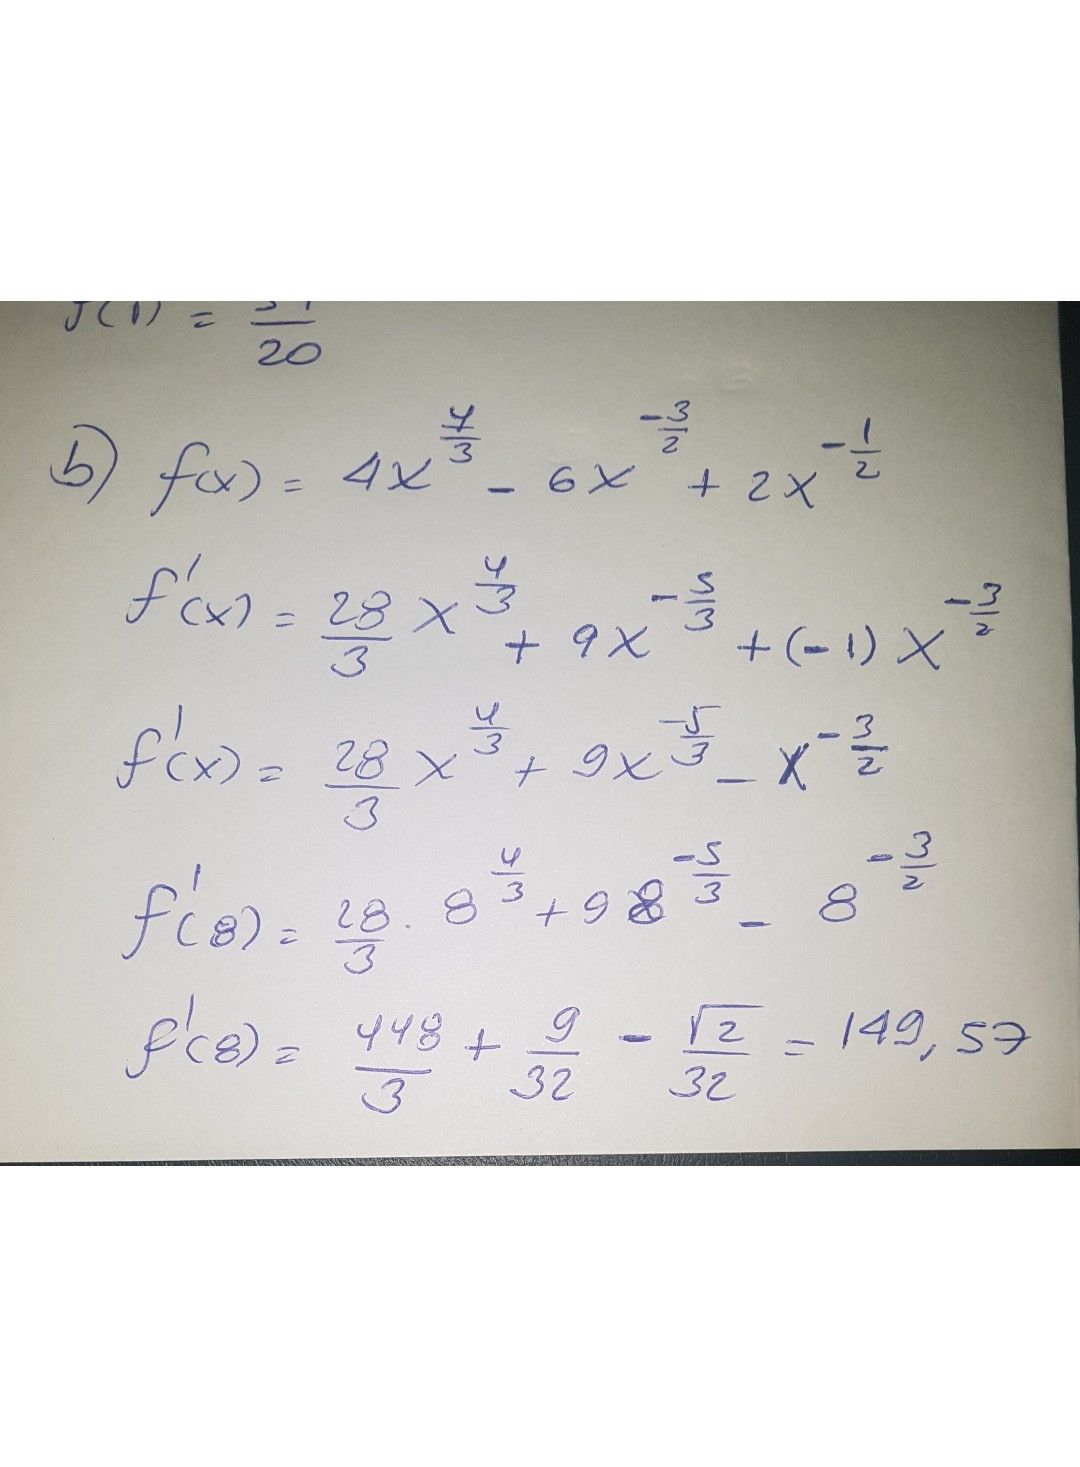 f(1) = /20
b) f(x) = 4x^(7/3) - 6x^(-3/2) + 2x^(-1/2)
f'(x) = 28/3 x^(4/3) + 9x^(-5/3) + (-1) x^(-3/2)
f'(x) = 28/3 x^(4/3) + 9x^(-5/3) - x^(-3/2)
f'(8) = 28/3 · 8^(4/3) + 9 8^(-5/3) - 8^(-3/2)
f'(8) = 448/3 + 9/32 - √2/32 = 149,57